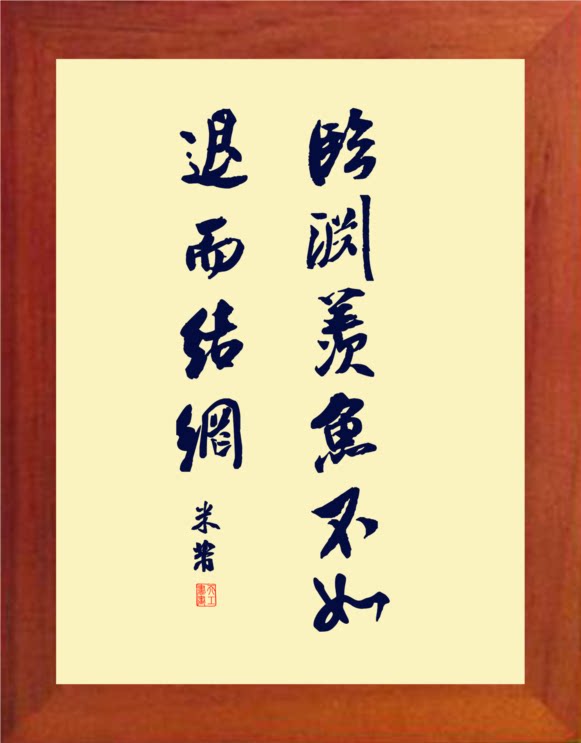 臨淵羨魚不如
退而結網
米芾